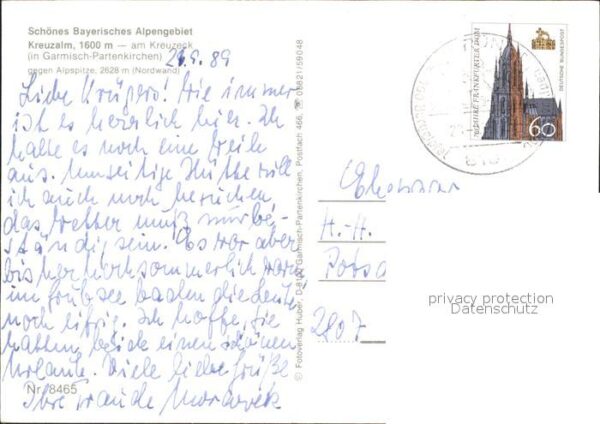 Schönes Bayerisches Alpengebiet
Kreuzalm, 1600 m — am Kreuzeck
(in Garmisch-Partenkirchen)
gegen Alpspitze, 2628 m (Nordwand)
21.9.89
Liebe Krügers! Wie immer
ist es herrlich hier. Ich
halte es noch eine Weile
aus. Umseitige Hütte will
ich auch noch besuchen,
das Wetter muß nur be-
ständig sein. Es war aber
bisher hochsommerlich warm
im see baden die Leute
noch eifrig. Ich hoffe, Sie
hatten beide einen schönen
Urlaub. Viele liebe Grüße
Ihre
Nr. 8465
© Fotoverlag Huber, D-8100 Garmisch-Partenkirchen, Postfach 466, ☎ 08821/59048
FRANKFURTER DOM
DEUTSCHE BUNDESPOST
60
Ehepaar
H.-H.
Potsd
2807
privacy protection
Datenschutz